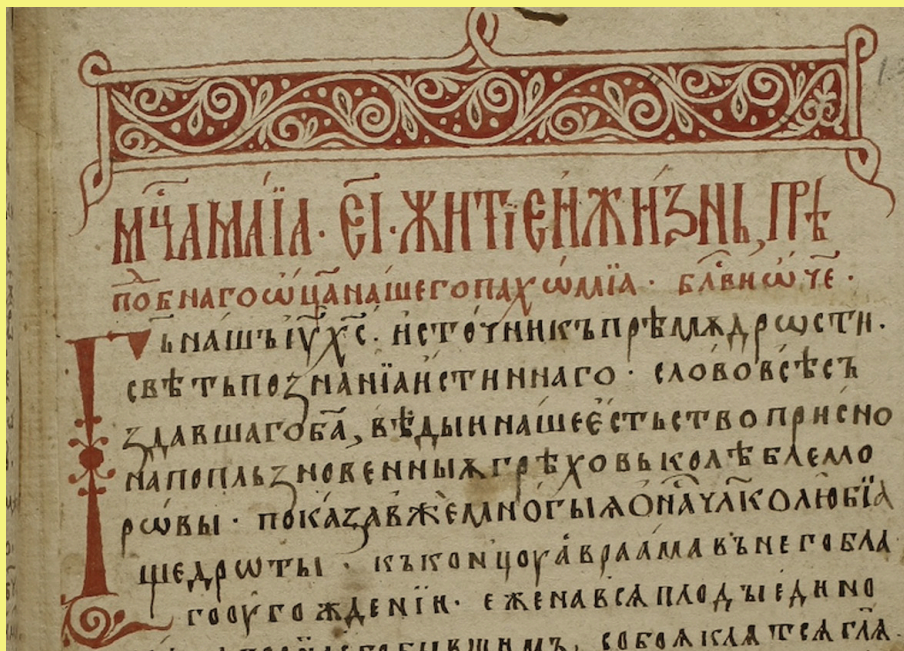 мⷭ҇ца маїа · е҃і · житїе и жизнь, прѣ
пⷣобнаго ѡц҃а нашего пахѡмїа · блⷭ҇ви ѡ҃че ·
Гь҃ нашь іу҃ хс҃ · источникъ прѣмѫдрѡсти ·
свѣть познанїа истиннаго · слово всѣ съ
здавшаго ба҃, вѣды и наше естьство присно
на попльзновенныѧ грѣховь колѣблемо
рѡвы · показав же многыѧ она чл҃колюбїа
щедрѡты · къ концоу авраама въ него бла
гооугождении · еже на всѧ плоды едино
собоѧ клѧтсѧ гл҃ѧ